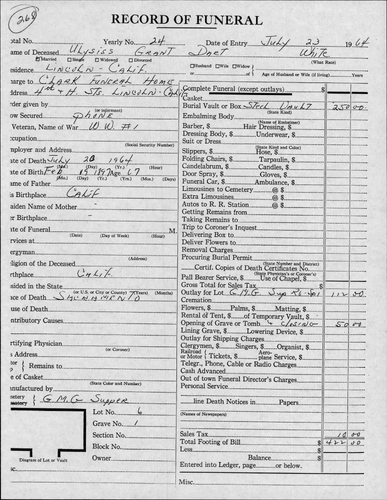 268
RECORD OF FUNERAL
otal No. Yearly No. 24 Date of Entry July 23 1964
ame of Deceased Ulysiss Grant Dart White
Married Single Widowed Divorced (What Race)
esidence Lincoln - Calif Husband Wife Widow
or of Age of Husband or Wife (if living) Years
arge to Clark Funeral Home
Address 4th & H. Sts. Lincoln - Calif
Complete Funeral (except outlays) $
Casket
der given by
Burial Vault or Box Steel Vault 250 00
(or informant) (State Kind)
ow Secured Phone
Embalming Body
(Name of Embalmer)
Veteran, Name of War W.W. #1
Barber, $ Hair Dressing, $
ccupation
Dressing Body, $ Underwear, $
(Social Security Number)
Suit or Dress
mployer and Address
Slippers, $ Hose, $
ate of Death July 20 1964
Folding Chairs, $ Tarpaulin, $
(Mo.) (Day) (Yr.) (Hour)
Candelabrum, $ Candles, $
ate of Birth Feb 15 1897 Age 67
Door Spray, $ Gloves, $
(Mo.) (Day) (Yr.) (Yrs.) (Mo.) (Days)
ame of Father
Funeral Car, $ Ambulance, $
Limousines to Cemetery @ $
s Birthplace Calif
Extra Limousines @ $
aiden Name of Mother
Autos to R. R. Station @ $
Getting Remains from
er Birthplace
Taking Remains to
ate of Funeral M.
Trip to Coroner's Inquest
(Date) (Day of Week) (Hour)
Delivering Box to
rvices at
Deliver Flowers to
ergyman
Removal Charges
(Address)
Procuring Burial Permit
eligion of the Deceased
(State Number and District)
Certif. Copies of Death Certificates No.
rthplace Calif
(State Physician's or Coroner's)
Pall Bearer Service, $ Use of Chapel, $
esided in the State
Gross Total for Sales Tax $
(or U.S. or City or County) (Years) (Months)
Outlay for Lot G.M.G 112 00
ace of Death Sacramento
Cremation
use of Death
Flowers, $ Palms, $ Matting, $
Rental of Tent, $ of Temporary Vault, $
ontributory Causes
Opening of Grave or Tomb & Closing 50 00
Lining Grave, $ Lowering Device, $
Outlay for Shipping Charges
rtifying Physician
Clergymen, $ Singers, $ Organist, $
(or Coroner)
Railroad Aero-
or Motor Tickets, $ plane Service, $
s Address
Telegr., Phone, Cable or Radio Charges
Remains to
Cash Advanced
e of Casket
Out of town Funeral Director's Charges
(State Color and Number)
Personal Service
anufactured by
line Death Notices in Papers
metery G.M.G Supper
(Names of Newspapers)
Lot No. 6
Grave No. 1
Section No. Sales Tax 10 00
Block No. Total Footing of Bill $ 422 00
Less
Balance $
Owner Entered into Ledger, page or below.
Diagram of Lot or Vault
Misc.